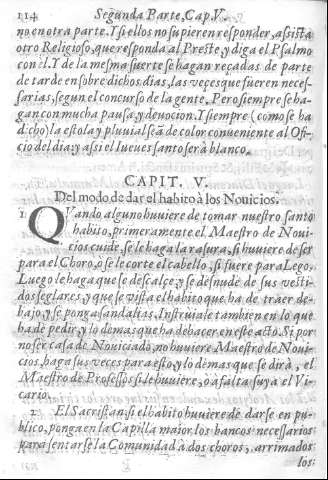 114 Segunda Parte, Cap. V.
no en otra parte. Y si ellos no supieren responder, assista
otro Religioso, que responda al Preste, y diga el Psalmo
con èl. Y de la mesma suerte se hagan reçadas de parte
de tarde en sobre dichos dias, las veçes que fueren neces-
sarias, segun el concurso de la gente. Pero siempre se ha-
gan con mucha pausa, y deuocion. Y siempre (como se ha
dicho) la estola y pluuial seã de color conueniente al Ofi-
cio del dia: y assi el Iueues santo serà blanco.
CAPIT. V.
Del modo de dar el habito à los Nouicios.
1 QVando alguno huuiere de tomar nuestro santo
habito, primeramente el Maestro de Noui-
cios cuide, se le haga la rasura, si huuiere de ser
para el Choro, ò se le corte el cabello, si fuere para Lego.
Luego le haga que se descalçe, y se desnude de sus vesti-
dos seglares, y que se vista el habito que ha de traer de-
bajo, y se ponga sandalias. Instruiale tambien en lo que
ha de pedir, y lo demas que ha de hacer en este acto. Si por
no ser casa de Nouiciado, no huuiere Maestro de Noui-
cios, haga sus veces para esto, y lo demas que se dirà, el
Maestro de Professos si le huuiere, ò a falta suya el Vi-
cario.
2 El Sacristan, si el habito huuiere de darse en pu-
blico, ponga en la Capilla maior los bancos necessarios
para sentarse la Comunidad à dos choros, arrimados
los